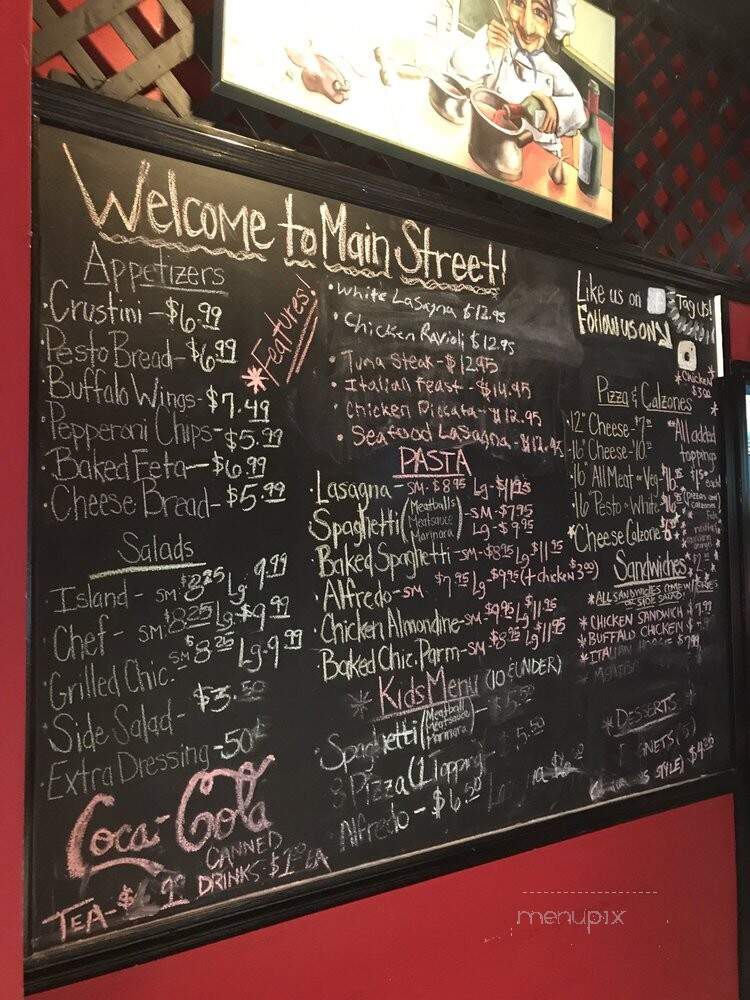 Welcome to Main Street!
Appetizers
·Crustini - $6.99
·Pesto Bread - $6.99
·Buffalo Wings - $7.49
·Pepperoni Chips - $5.99
·Baked Feta - $6.99
·Cheese Bread - $5.99
Salads
·Island - sm $8.25 Lg 9.99
·Chef - sm $8.25 Lg-$9.99
·Grilled Chic. - sm $8.25 Lg-9.99
·Side Salad - $3.50
·Extra Dressing - 50¢
Coca-Cola
CANNED
DRINKS-
TEA-
*Features!
·White Lasagna $12.95
·Chicken Ravioli $12.95
·Tuna Steak - $12.95
·Italian Feast - $14.95
·Chicken Piccata - $12.95
·Seafood Lasagna - $12.95
PASTA
·Lasagna - SM- $8.95 Lg- $11.95
·Spaghetti (Meatballs Meatsauce Marinara) -SM- $7.95 Lg- $9.95
·Baked Spaghetti - SM- $8.95 Lg $11.95
·Alfredo - SM $7.95 Lg $9.95 (+ chicken $3.00)
·Chicken Almondine - SM $9.95 Lg $11.95
·Baked Chic. Parm - SM $8.95 Lg $11.95
*Kids Menu (10 & UNDER)
·Spaghetti (Meatball Meatsauce Marinara) -
Pizza (1 topping) - 5.50
·Alfredo - $6.50
Like us on
Tag us!
Follow us on
*CHICKEN
$3.00
Pizza & Calzones
·12" Cheese -
·16" Cheese -
16" All Meat or Veg -
·16" Pesto or White
*Cheese Calzone
*All added
toppings
Sandwiches
*ALL SANDWICHES COME W/ FRIES
OR SIDE SALAD!
*CHICKEN SANDWICH $7.99
*BUFFALO CHICKEN
*ITALIAN $7.99
DESSERTS
STYLE)
menupix